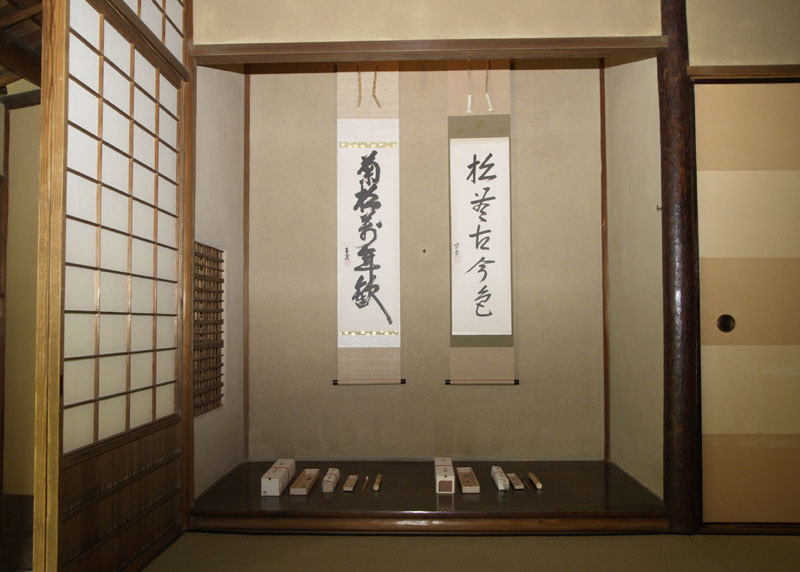 松無古今色
菊松萬年歓